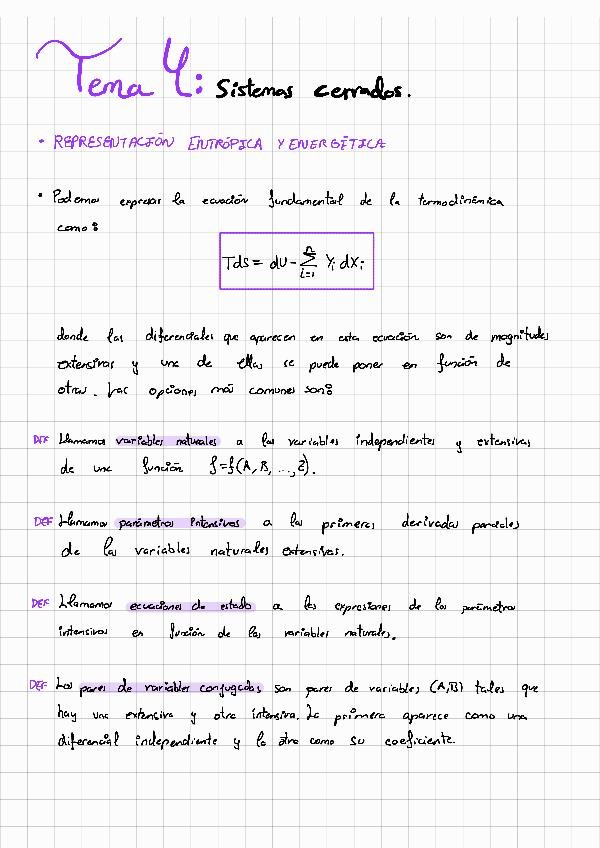 Tema 4: Sistemas cerrados.
• REPRESENTACIÓN ENTRÓPICA Y ENERGÉTICA
• Podemos expresar la ecuación fundamental de la termodinámica
como:
TdS = dU - \sum_{i=1}^{n} Y_i dX_i
donde las diferenciales que aparecen en esta ecuación son de magnitudes
extensivas y una de ellas se puede poner en función de
otras. Las opciones más comunes son:
DEF Llamamos variables naturales a las variables independientes y extensivas
de una función f=f(A, B, ..., Z).
DEF Llamamos parámetros intensivos a las primeras derivadas parciales
de las variables naturales extensivas.
DEF Llamamos ecuaciones de estado a las expresiones de los parámetros
intensivos en función de las variables naturales.
DEF Los pares de variables conjugadas son pares de variables (A,B) tales que
hay una extensiva y otra intensiva. La primera aparece como una
diferencial independiente y la otra como su coeficiente.